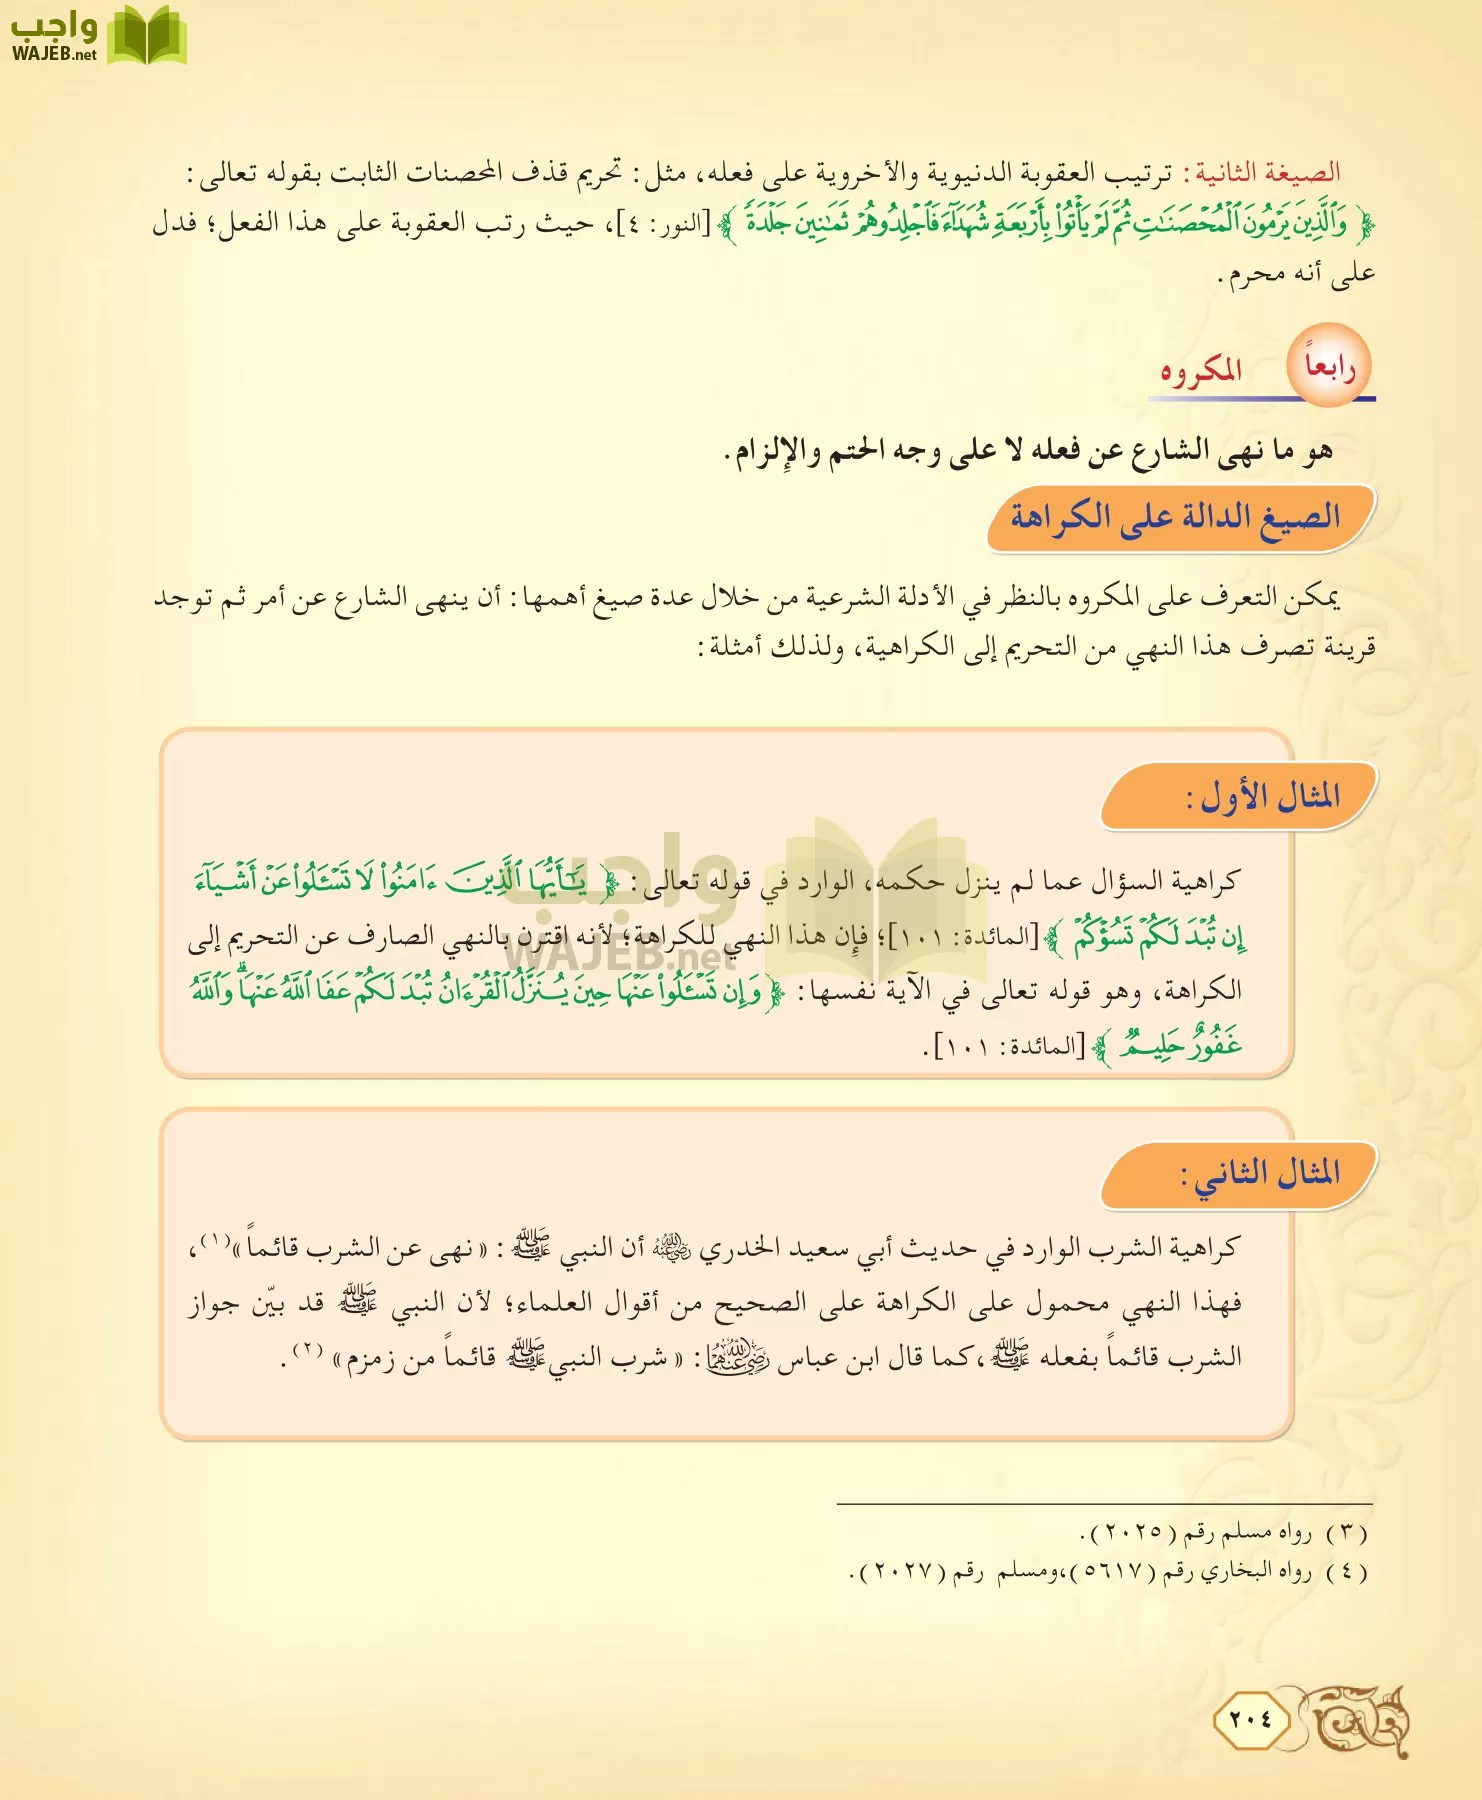 واجب
WAJEB.net
الصيغة الثانية: ترتيب العقوبة الدنيوية والأخروية على فعله، مثل: تحريم قذف المحصنات الثابت بقوله تعالى:
﴿ وَٱلَّذِينَ يَرْمُونَ ٱلْمُحْصَنَٰتِ ثُمَّ لَمْ يَأْتُوا۟ بِأَرْبَعَةِ شُهَدَآءَ فَٱجْلِدُوهُمْ ثَمَٰنِينَ جَلْدَةً ﴾ [النور: ٤]، حيث رتب العقوبة على هذا الفعل؛ فدل
على أنه محرم.
رابعاً المكروه
هو ما نهى الشارع عن فعله لا على وجه الحتم والإلزام.
الصيغ الدالة على الكراهة
يمكن التعرف على المكروه بالنظر في الأدلة الشرعية من خلال عدة صيغ أهمها: أن ينهى الشارع عن أمر ثم توجد
قرينة تصرف هذا النهي من التحريم إلى الكراهية، ولذلك أمثلة:
المثال الأول:
كراهية السؤال عما لم ينزل حكمه، الوارد في قوله تعالى: ﴿ يَٰٓأَيُّهَا ٱلَّذِينَ ءَامَنُوا۟ لَا تَسْـَٔلُوا۟ عَنْ أَشْيَآءَ
إِن تُبْدَ لَكُمْ تَسُؤْكُمْ ﴾ [المائدة: ١٠١]؛ فإن هذا النهي للكراهة؛ لأنه اقترن بالنهي الصارف عن التحريم إلى
الكراهة، وهو قوله تعالى في الآية نفسها: ﴿ وَإِن تَسْـَٔلُوا۟ عَنْهَا حِينَ يُنَزَّلُ ٱلْقُرْءَانُ تُبْدَ لَكُمْ عَفَا ٱللَّهُ عَنْهَا ۗ وَٱللَّهُ
غَفُورٌ حَلِيمٌ ﴾ [المائدة: ١٠١].
واجب
WAJEB.net
المثال الثاني:
كراهية الشرب الوارد في حديث أبي سعيد الخدري رضي الله عنه أن النبي ﷺ: «نهى عن الشرب قائماً»(١)،
فهذا النهي محمول على الكراهة على الصحيح من أقوال العلماء؛ لأن النبي ﷺ قد بيّن جواز
الشرب قائماً بفعله ﷺ،كما قال ابن عباس رضي الله عنهما: «شرب النبي ﷺ قائماً من زمزم» (٢).
(٣) رواه مسلم رقم (٢٠٢٥).
(٤) رواه البخاري رقم (٥٦١٧)،ومسلم رقم (٢٠٢٧).
٢٠٤